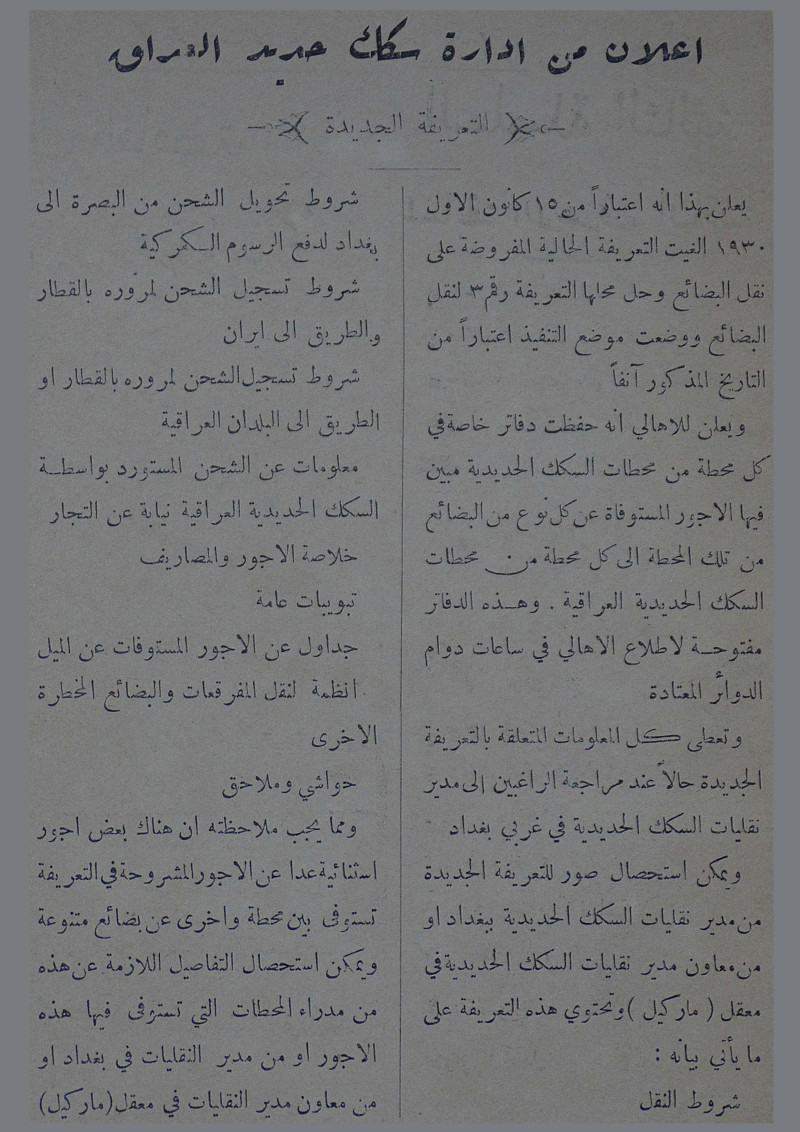 اعلان من ادارة سكك حديد العراق
التعريفة الجديدة
يعلن بهذا انه اعتباراً من ١٥ كانون الاول
١٩٣٠ الغيت التعريفة الحالية المفروضة على
نقل البضائع وحل محلها التعريفة رقم ٣ لنقل
البضائع ووضعت موضع التنفيذ اعتباراً من
التاريخ المذكور آنفاً
ويعلن للاهالي انه حفظت دفاتر خاصة في
كل محطة من محطات السكك الحديدية مبين
فيها الاجور المستوفاة عن كل نوع من البضائع
من تلك المحطة الى كل محطة من محطات
السكك الحديدية العراقية . وهذه الدفاتر
مفتوحة لاطلاع الاهالي في ساعات دوام
الدوائر المعتادة
وتعطى كل المعلومات المتعلقة بالتعريفة
الجديدة حالاً عند مراجعة الراغبين إلى مدير
نقليات السكك الحديدية في غربي بغداد
ويمكن استحصال صور للتعريفة الجديدة
من مدير نقليات السكك الحديدية ببغداد او
من معاون مدير نقليات السكك الحديدية في
معقل ( ماركيل ) وتحتوي هذه التعريفة على
ما يأتي بيانه :
شروط النقل
شروط تحويل الشحن من البصرة الى
بغداد لدفع الرسوم الكمركية
شروط تسجيل الشحن لمروره بالقطار
والطريق الى ايران
شروط تسجيل الشحن لمروره بالقطار او
الطريق الى البلدان العراقية
معلومات عن الشحن المستورد بواسطة
السكك الحديدية العراقية نيابة عن التجار
خلاصة الاجور والمصاريف
تبويبات عامة
جداول عن الاجور المستوفات عن الميل
انظمة لنقل المفرقعات والبضائع الخطرة
الاخرى
حواشي وملاحق
ومما يجب ملاحظته ان هناك بعض اجور
استثنائية عدا عن الاجور المشروحة في التعريفة
تستوفى بين محطة واخرى عن بضائع متنوعة
ويمكن استحصال التفاصيل اللازمة عن هذه
من مدراء المحطات التي تستوفى فيها هذه
الاجور او من مدير النقليات في بغداد او
من معاون مدير النقليات في معقل (ماركيل)